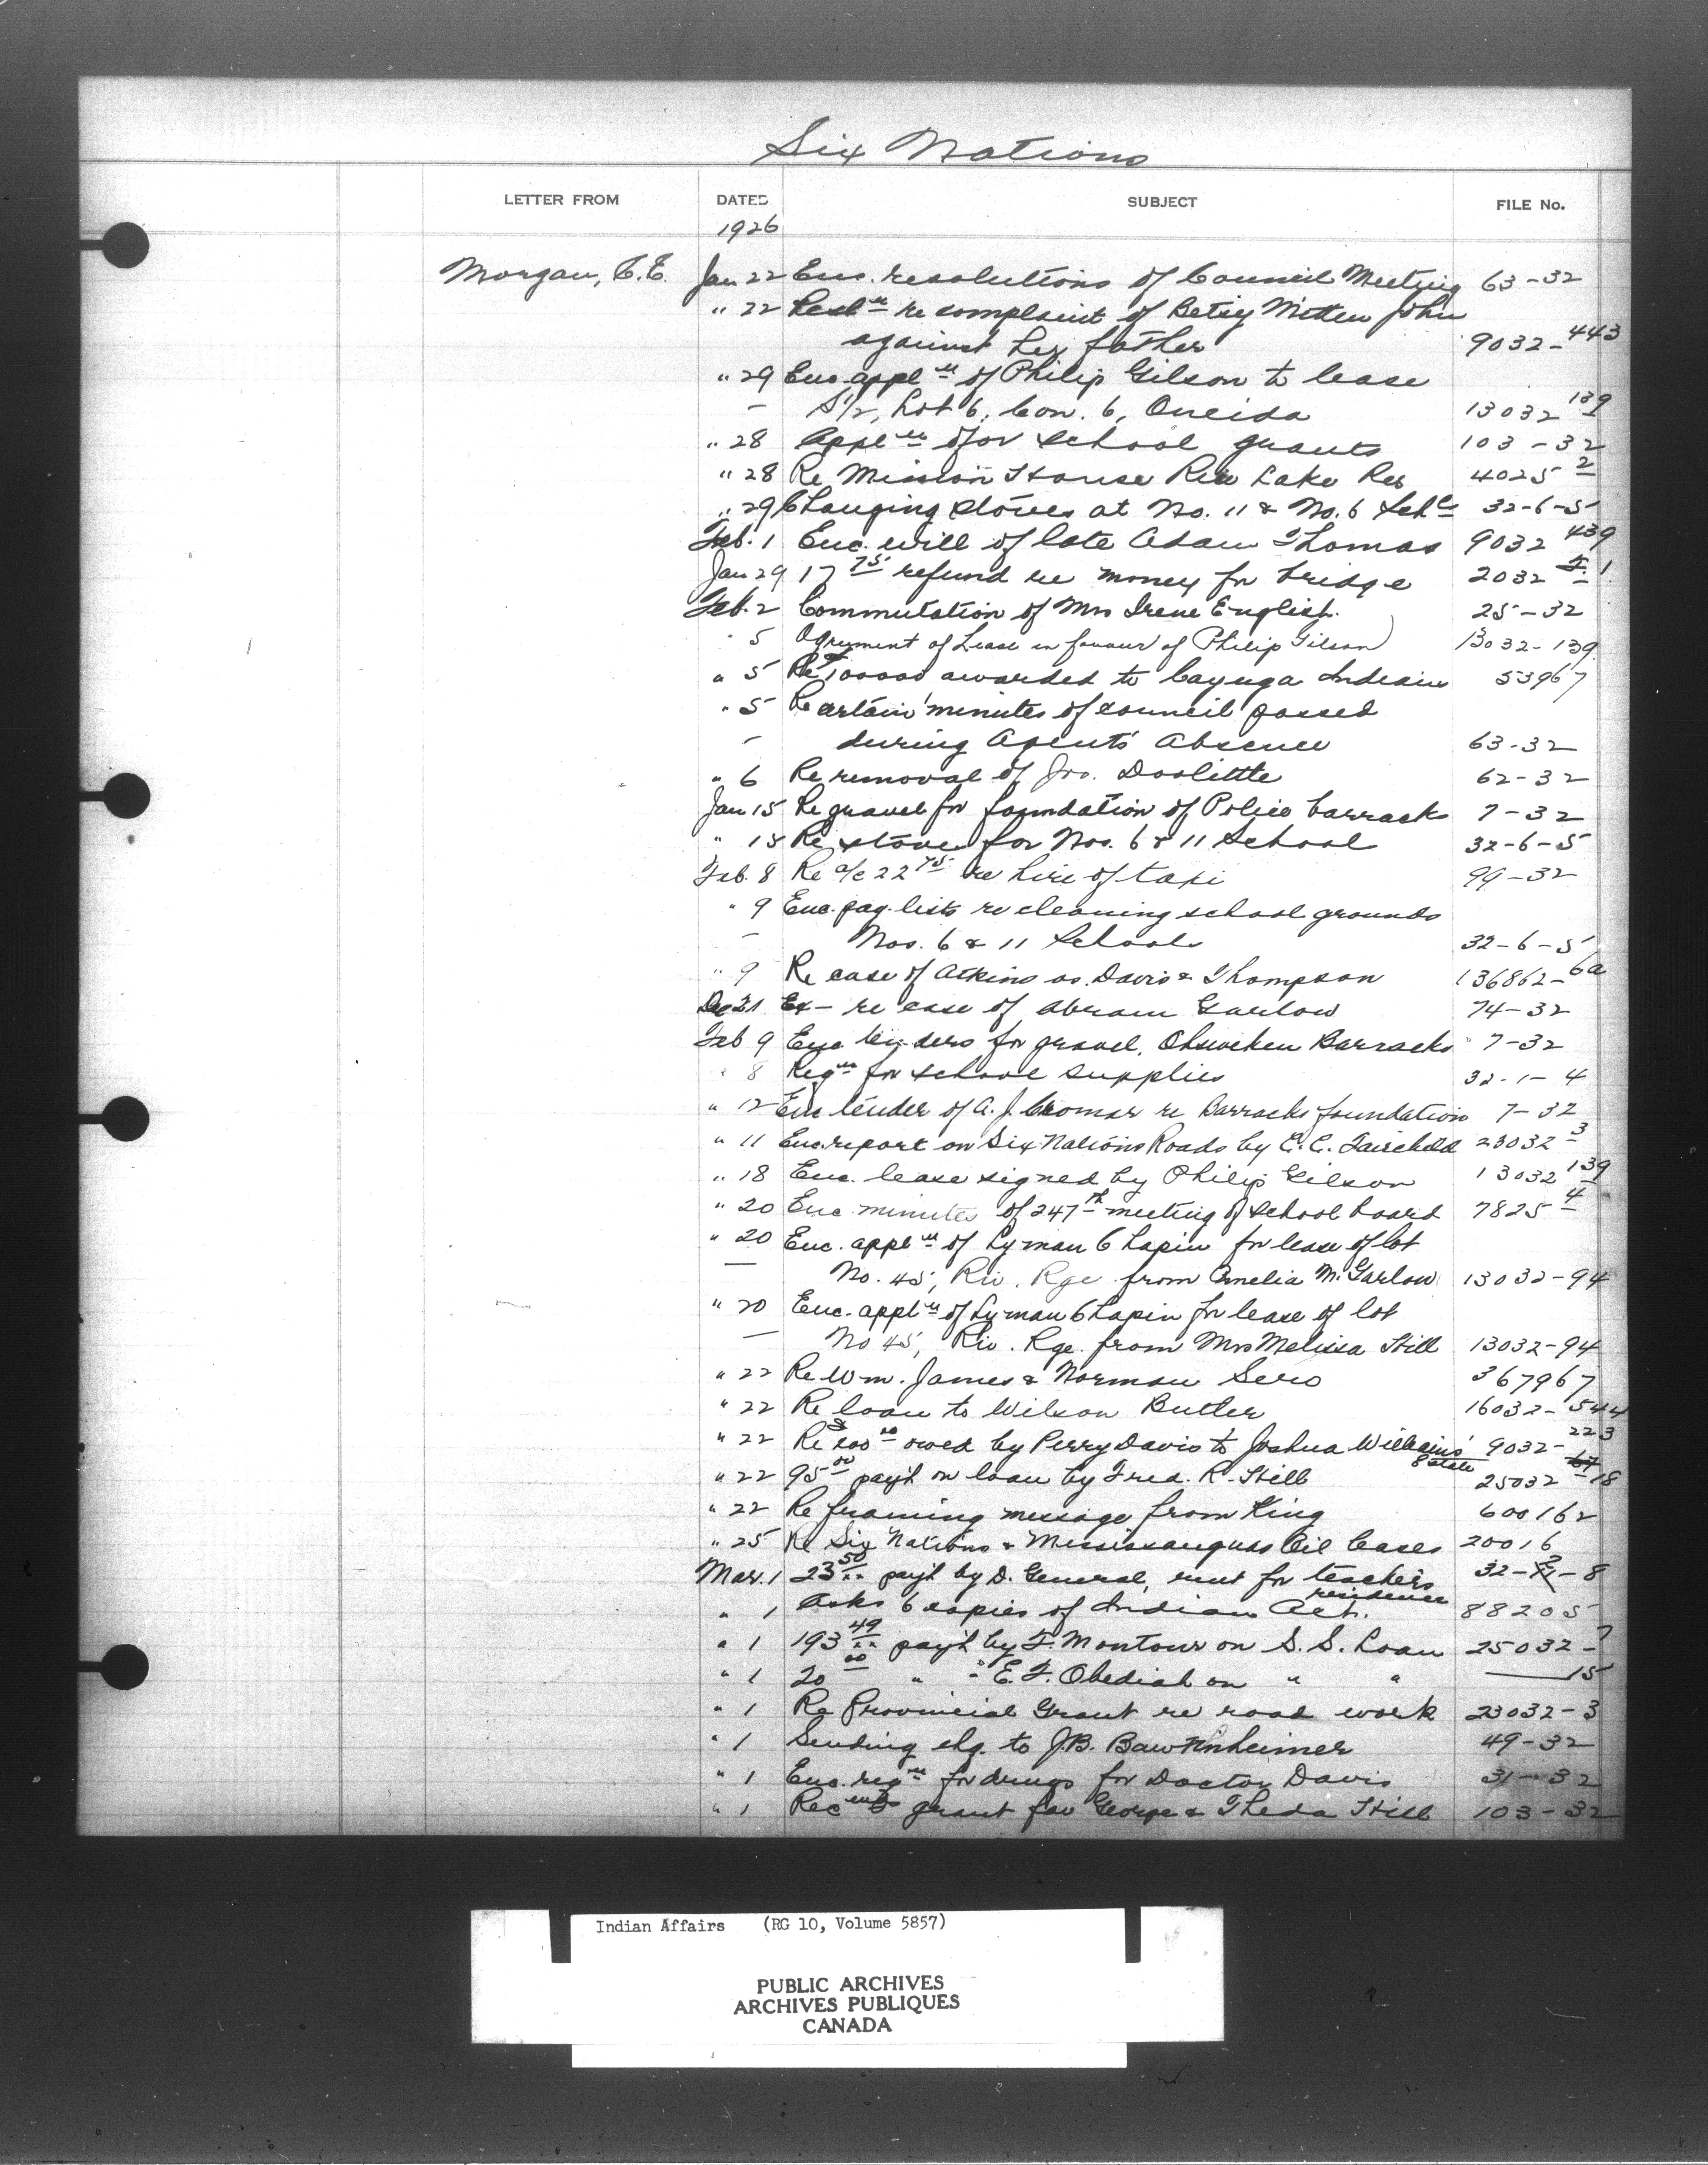 Six Nations
LETTER FROM DATED SUBJECT FILE No.
1926
Morgan, C.E. Jan 22 Enc. resolutions of Council Meeting 63-32
" 22 re complaint of Betsy Mitten John
against her father 9032-443
" 29 Enc. appl<u>n</u> of Philip Gilson to lease
- S 1/2, Lot 6, Con. 6, Oneida 13032 139
" 28 Appl<u>n</u> for school grants 103-32
" 28 Re Mission House Rice Lake Res 4025 2
" 29 Changing stoves at No. 11 & No. 6 Schls 32-6-5
Feb. 1 Enc. will of late Adam Thomas 9032 439
Jan 29 17 75 refund re money for bridge 2032 1
Feb. 2 Commutation of Mrs Irene English. 25-32
" 5 Agreement of Lease in favour of Philip Gilson 13032-139
" 5 Re $100000 awarded to Cayuga Indians 53967
" 5 Re certain minutes of council passed
- during Agents' Absence 63-32
" 6 Re removal of Jno. Doolittle 62-32
Jan 15 Re gravel for foundation of Police barracks 7-32
" 15 Re stoves for Nos. 6 & 11 School 32-6-5
Feb. 8 Re a/c 22 75 re hire of taxi 99-32
" 9 Enc. pay-lists re cleaning school grounds
- Nos. 6 & 11 Schools 32-6-5
" 9 Re case of Atkins vs. Davis & Thompson 136862-6a
Dec 21 Ex- re case of Abram Garlow 74-32
Feb 9 Enc. tenders for gravel, Ohsweken Barracks 7-32
" 8 Reqn for school supplies 32-1-4
" 12 Enc tender of A. J. Cromar re Barracks foundation 7-32
" 11 Enc. report on Six Nations Roads by C. C. Fairchild 23032 3
" 18 Enc. lease signed by Philip Gilson 13032 139
" 20 Enc minutes of 247th meeting of school board 7825 4
" 20 Enc. appln of Lyman Chapin for lease of lot
- No. 45, Riv. Rge from Amelia M. Garlow 13032-94
" 20 Enc. appln of Lyman Chapin for lease of lot
- No 45, Riv. Rge. from Mrs Melissa Hill 13032-94
" 22 Re Wm. James & Norman Sero 367967
" 22 Re loan to Wilson Butler 16032-544
" 22 Re $200 00 owed by Perry Davis to Joshua Williams' Estate 9032-223
" 22 95 00 pay't on loan by Fred. R. Hill 25032 18
" 22 Re framing message from King 600162
" 25 Re Six Nations & Mississaugas Oil Leases 20016
Mar. 1 23 50 pay't by D. General, rent for teachers residence 32-2-8
" 1 Asks 6 copies of Indian Act. 88205
" 1 193 49 pay't by F. Montour on S. S. Loan 25032-7
" 1 20 00 " " E. F. Obediah on " " 15
" 1 Re Provincial Grant re road work 23032-3
" 1 Sending chq. to J.B. Bawtinheimer 49-32
" 1 Enc. reqn for drugs for Doctor Davis 31-32
" 1 Recends grant for George & Theda Hill 103-32
Indian Affairs (RG 10, Volume 5857)
PUBLIC ARCHIVES
ARCHIVES PUBLIQUES
CANADA